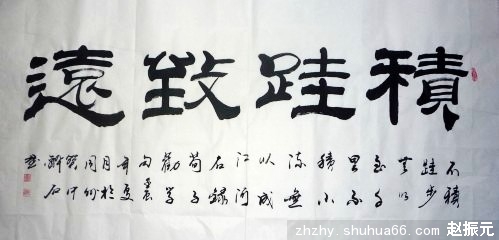 積跬致遠
不積
跬步
無以
至千
里不
積小
流無
以成
江河
右錄
荀子
勸學
句
年夏
月於
同州
zhzhy.shuhua66.com 赵振元